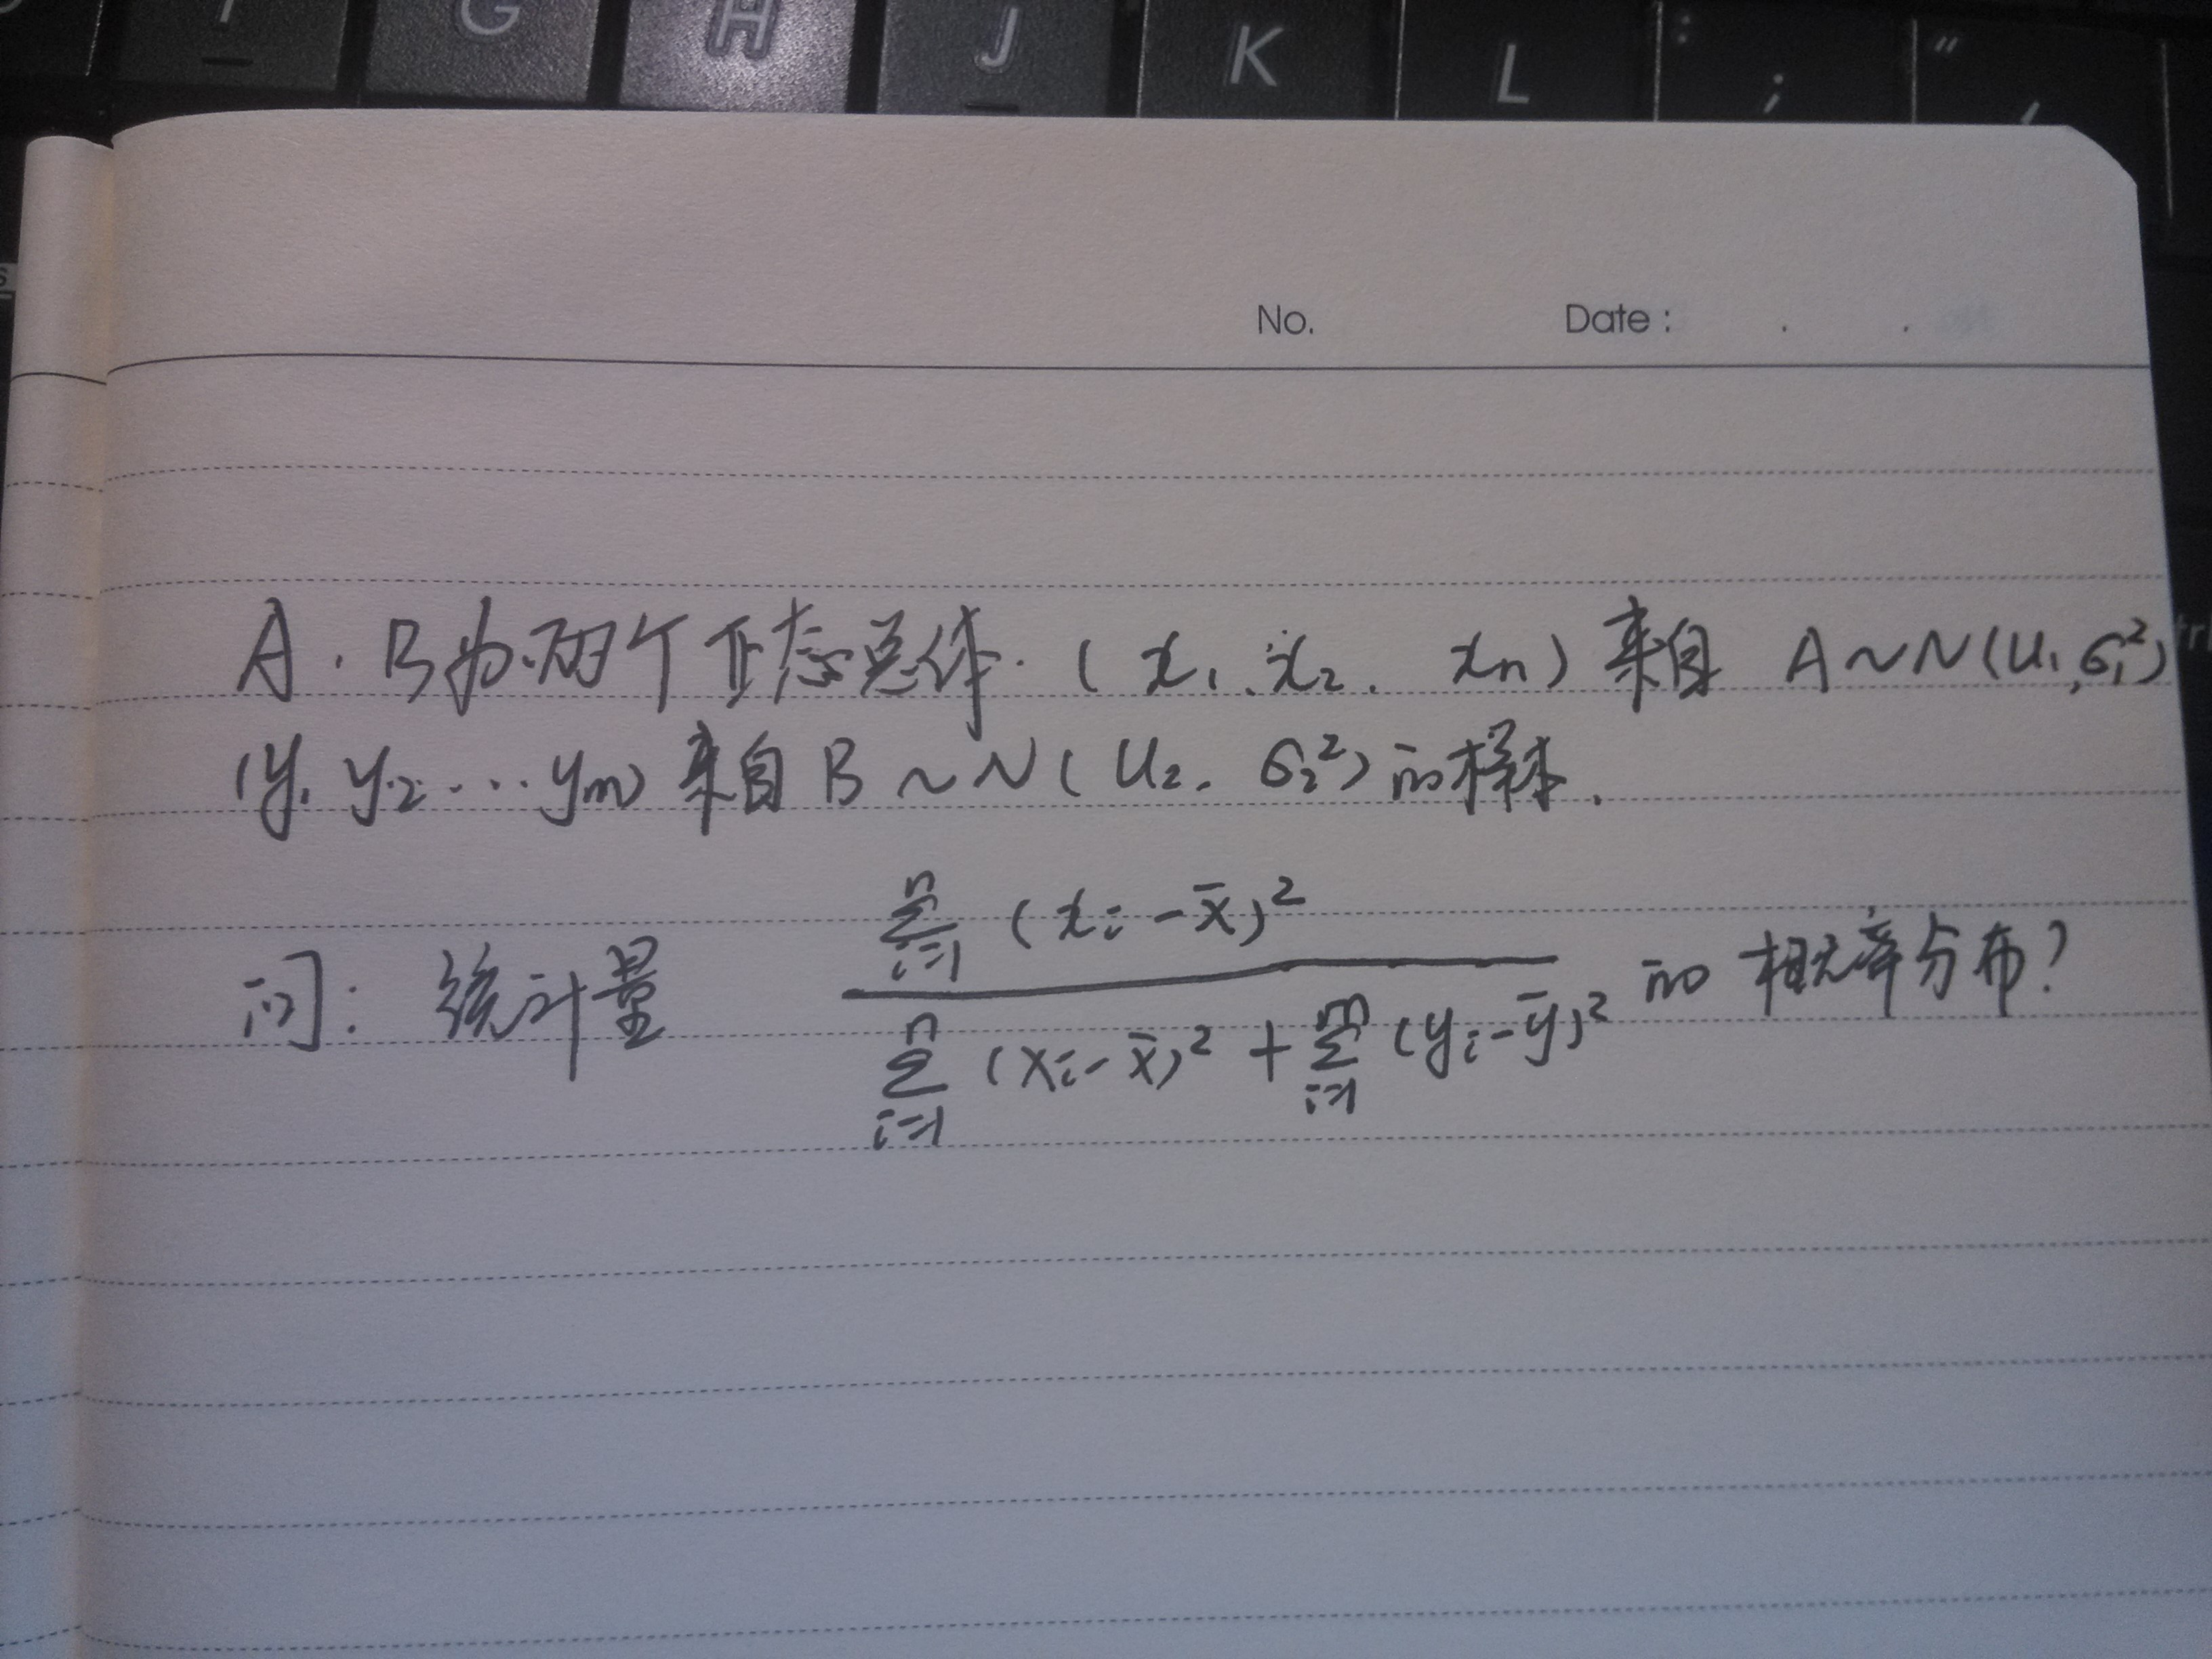 G H J K L : ; " ,
No. Date : . .
A、B为两个正态总体. (x₁、x₂、 xₙ) 来自 A~N(u₁,σ₁²)
(y₁ y₂ ... yₘ) 来自 B ~ N( u₂, σ₂²) 的样本.
问: 统计量 \frac{\sum_{i=1}^{n} (x_i - \bar{x})^2}{\sum_{i=1}^{n} (x_i - \bar{x})^2 + \sum_{i=1}^{m} (y_i - \bar{y})^2} 的 概率分布?